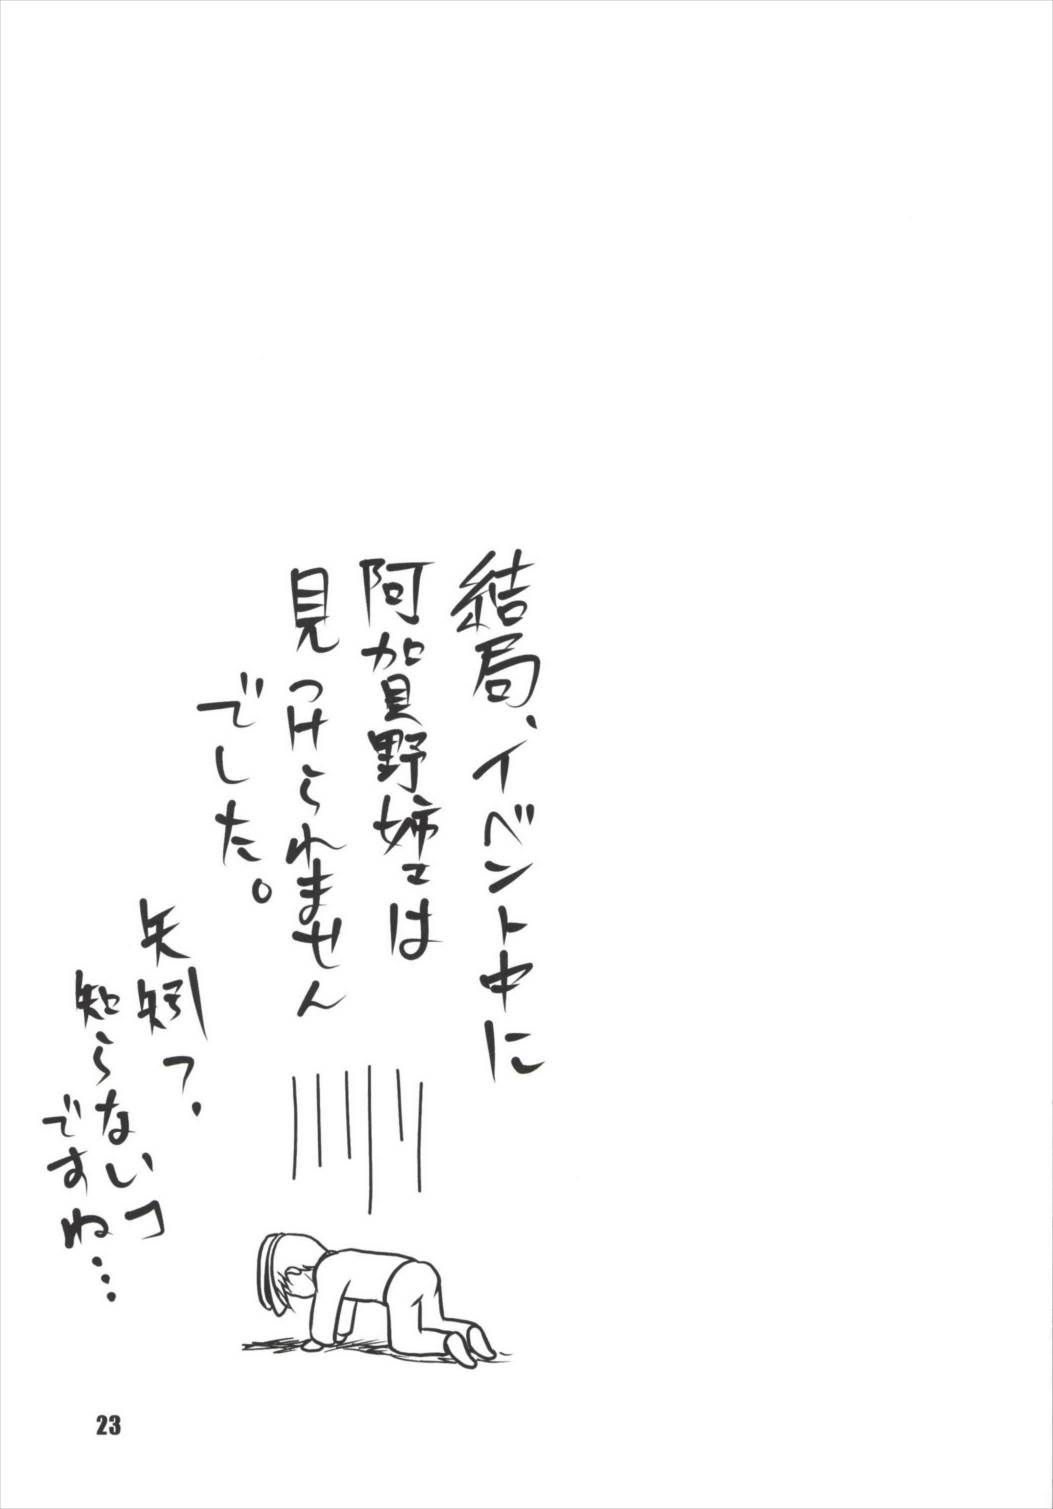 結局、イベント中に
阿賀野姉ェは
見つけられません
でした。
矢矧?
知らないコ
ですね…
23